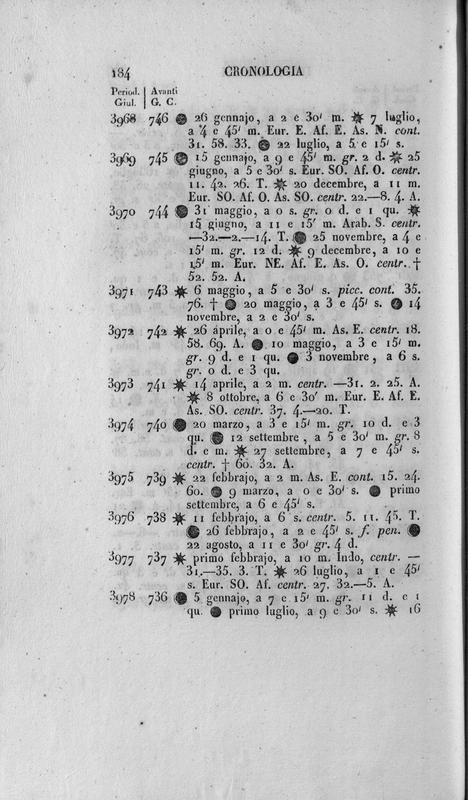 184 CRONOLOGIA
Period. | Avanti
Giul. | G. C.
3968 746 ● 26 gennajo, a 2 e 30' m. ✷ 7 luglio,
a 4 e 45' m. Eur. E. Af. E. As. N. cont.
31. 58. 33. ● 22 luglio, a 5 e 15' s.
3969 745 ● 15 gennajo, a 9 e 45' m. gr. 2 d. ✷ 25
giugno, a 5 e 30' s. Eur. SO. Af. O. centr.
11. 42. 26. T. ✷ 20 decembre, a 11 m.
Eur. SO. Af. O. As. SO. centr. 22.—8. 4. A.
3970 744 ● 31 maggio, a 0 s. gr. 0 d. e 1 qu. ✷
15 giugno, a 11 e 15' m. Arab. S. centr.
—32.—2.—14. T. ● 25 novembre, a 4 e
15' m. gr. 12 d. ✷ 9 decembre, a 10 e
15' m. Eur. NE. Af. E. As. O. centr. †
52. 52. A.
3971 743 ✷ 6 maggio, a 5 e 30' s. picc. cont. 35.
76. † ● 20 maggio, a 3 e 45' s. ● 14
novembre, a 2 e 30' s.
3972 742 ✷ 26 aprile, a 0 e 45' m. As. E. centr. 18.
58. 69. A. ● 10 maggio, a 3 e 15' m.
gr. 9 d. e 1 qu. ● 3 novembre, a 6 s.
gr. 0 d. e 3 qu.
3973 741 ✷ 14 aprile, a 2 m. centr. —31. 2. 25. A.
✷ 8 ottobre, a 6 e 30' m. Eur. E. Af. E.
As. SO. centr. 37. 4.—20. T.
3974 740 ● 20 marzo, a 3 e 15' m. gr. 10 d. e 3
qu. ● 12 settembre, a 5 e 30' m. gr. 8
d. e m. ✷ 27 settembre, a 7 e 45' s.
centr. † 60. 32. A.
3975 739 ✷ 22 febbrajo, a 2 m. As. E. cont. 15. 24.
60. ● 9 marzo, a 0 e 30' s. ● primo
settembre, a 6 e 45' s.
3976 738 ✷ 11 febbrajo, a 6 s. centr. 5. 11. 45. T.
● 26 febbrajo, a 2 e 45' s. f. pen. ●
22 agosto, a 11 e 30' gr. 4 d.
3977 737 ✷ primo febbrajo, a 10 m. Indo, centr. —
31.—35. 3. T. ✷ 26 luglio, a 1 e 45'
s. Eur. SO. Af. centr. 27. 32.—5. A.
3978 736 ● 5 gennajo, a 7 e 15' m. gr. 11 d. e 1
qu. ● primo luglio, a 9 e 30' s. ✷ 16